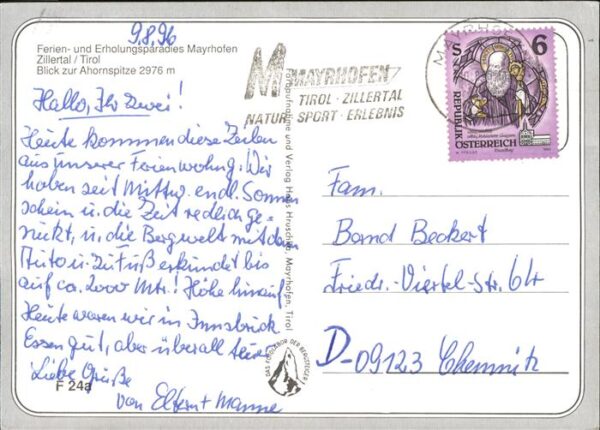 9.8.96
Ferien- und Erholungsparadies Mayrhofen
Zillertal / Tirol
Blick zur Ahornspitze 2976 m
Hallo, Ihr zwei!
Heute kommen diese Zeilen
aus unserer Ferienwohng. Wir
haben seit Mittw. endl. Sonnen
schein u. die Zeit redlich ge-
nutzt, u. die Bergwelt mit dem
Auto u. zu Fuß erkundet bis
auf ca. 2000 Mtr.! Höhe hinauf
Heute waren wir in Innsbruck
Essen gut, aber überall teuer
Liebe Grüße
von Eltern + Manne
F 24a
M MAYRHOFEN
TIROL · ZILLERTAL
NATUR · SPORT · ERLEBNIS
Fotoaufnahme und Verlag Hans Hruschka, Mayrhofen, Tirol
DAS EDELKOR DER BERGSTEIGER
MAYRHOF
S 6
REPUBLIK
ÖSTERREICH
Fam.
Bernd Beckert
Friedr.-Viertel-Str. 64
D-09123 Chemnitz